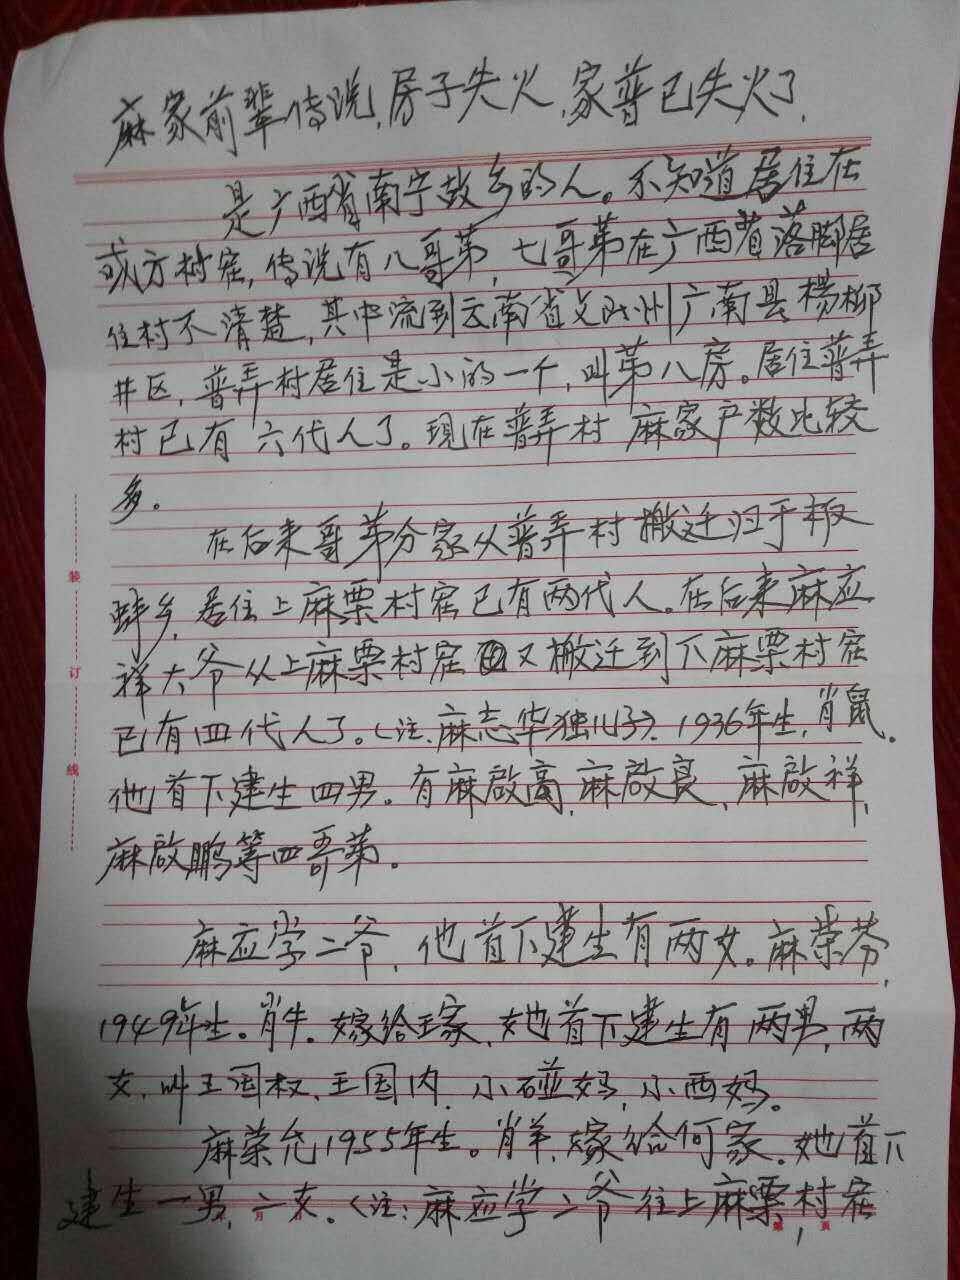 麻家前辈传说,房子失火,家普已失火了,
是广西省南宁故乡的人。不知道居住在
或方村寨,传说有八哥弟,七哥弟在广西省落脚居
住村不清楚,其中流到云南省文山州广南县杨柳
井区,普弄村居住是小的一个,叫第八房。居住普弄
村已有六代人了。现在普弄村 麻家户数比较
多。
在后来哥弟分家从普弄村搬迁归于板
蚌乡,居住上麻栗村寨已有两代人。在后来麻应
祥大爷从上麻栗村寨又搬迁到下麻栗村寨
已有四代人了。(注、麻志华独儿子)、1936年生,肖鼠。
他首下建生四男。有麻啟高,麻啟良、麻啟祥,
麻啟鹏等四哥弟。
麻应学二爷,他首下建生有两女。麻荣芬,
1949年生。肖牛。嫁给王家,她首下建生有两男,两
女,叫王国权、王国内,小碰妈,小西妈。
麻荣允1955年生。肖羊,嫁给何家。她首下
建生一男,二女。(注:麻应学二爷往上麻栗,村寨
装
订
线
月
第
页